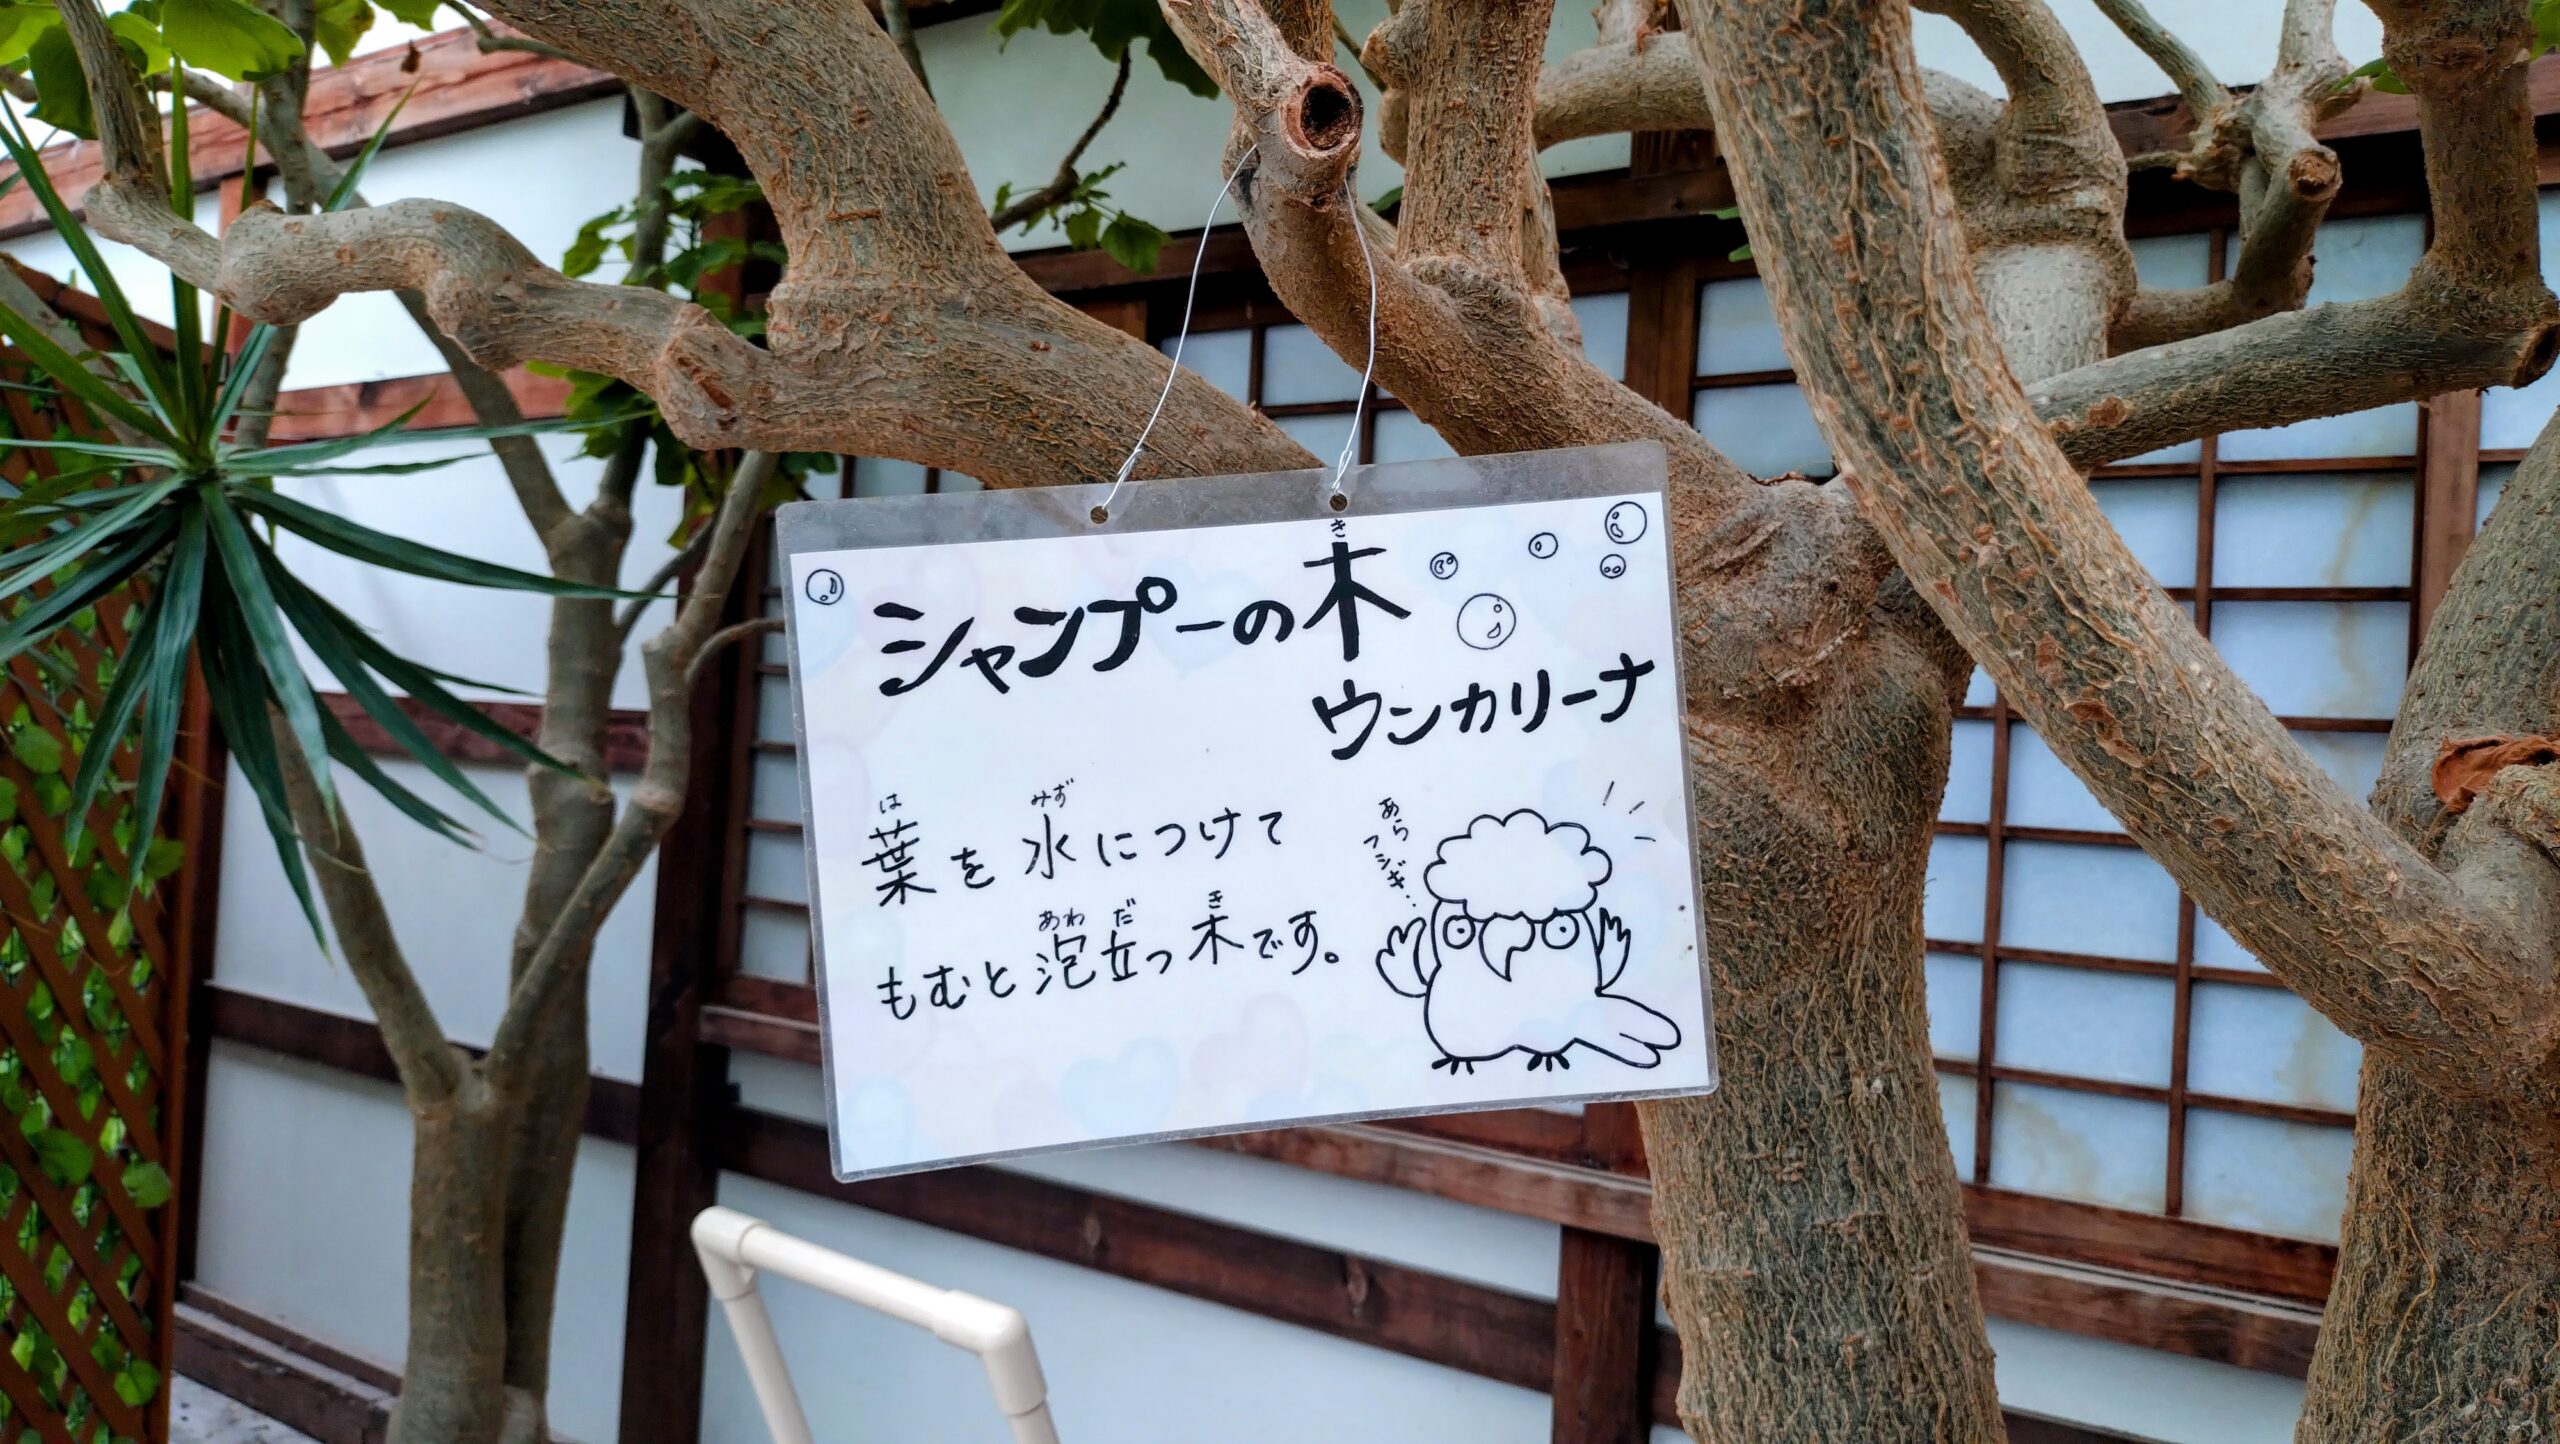 シャンプーの木
ウンカリーナ
葉を水につけて
もむと泡立つ木です。
あら
フシギ…